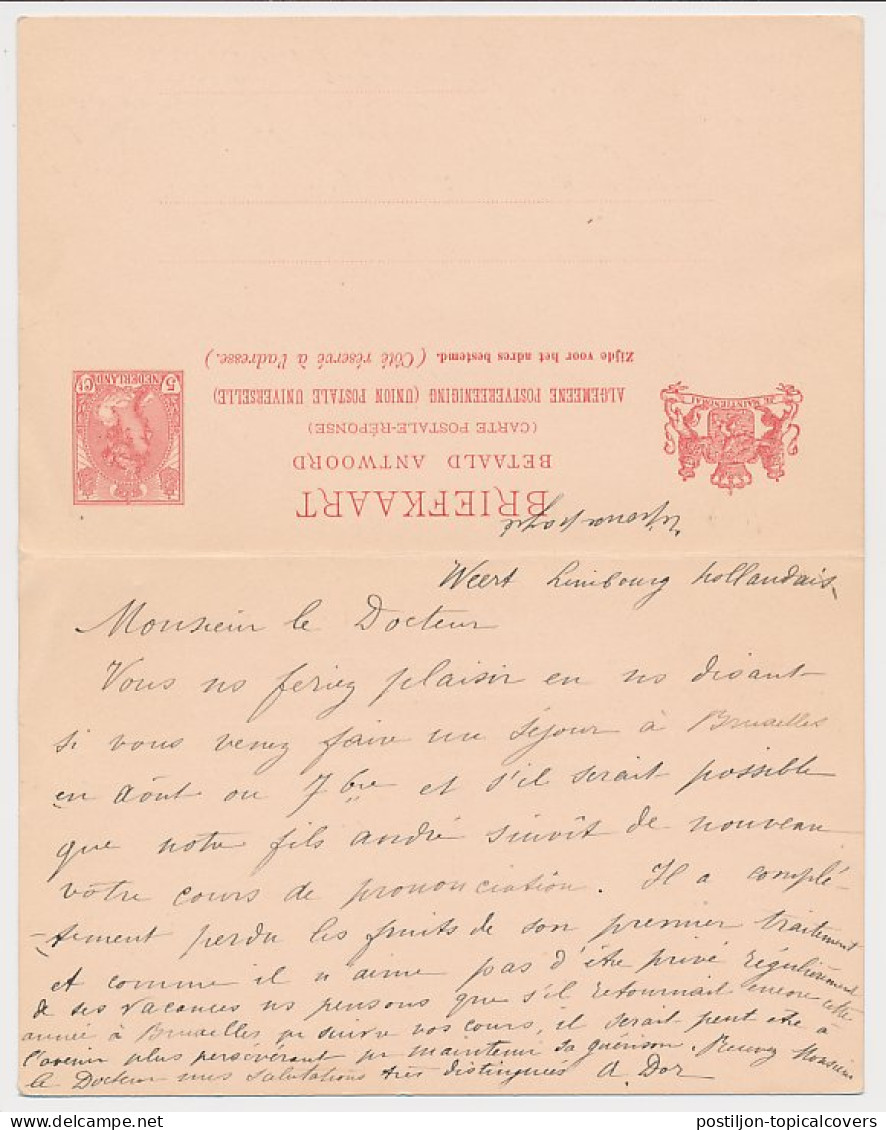 Zijde voor het adres bestemd. (Côté réservé à l'adresse.)
ALGEMEENE POSTVEREENIGING (UNION POSTALE UNIVERSELLE)
(CARTE POSTALE-RÉPONSE)
BETAALD ANTWOORD
BRIEFKAART
NEDERLAND
5 Ct
JE MAINTIENDRAI
Weert Limbourg hollandais
Monsieur le Docteur
Vous ns feriez plaisir en ns disant
si vous venez faire un séjour à Bruxelles
en Août ou 7bre et s'il serait possible
que notre fils andré suivît de nouveau
votre cours de prononciation. Il a complé-
-tement perdu les fruits de son premier traitement
et comme il n'aime pas d'être privé régulièrement
de ses vacances ns pensons que s'il retournait encore cette
année à Bruxelles pr suivre vos cours, il serait peut etre à
l'avenir plus persévérant pr maintenir sa guérison. Recevez Monsieur
le Docteur mes salutations très distinguées A. Dor
postiljon-topicalcovers